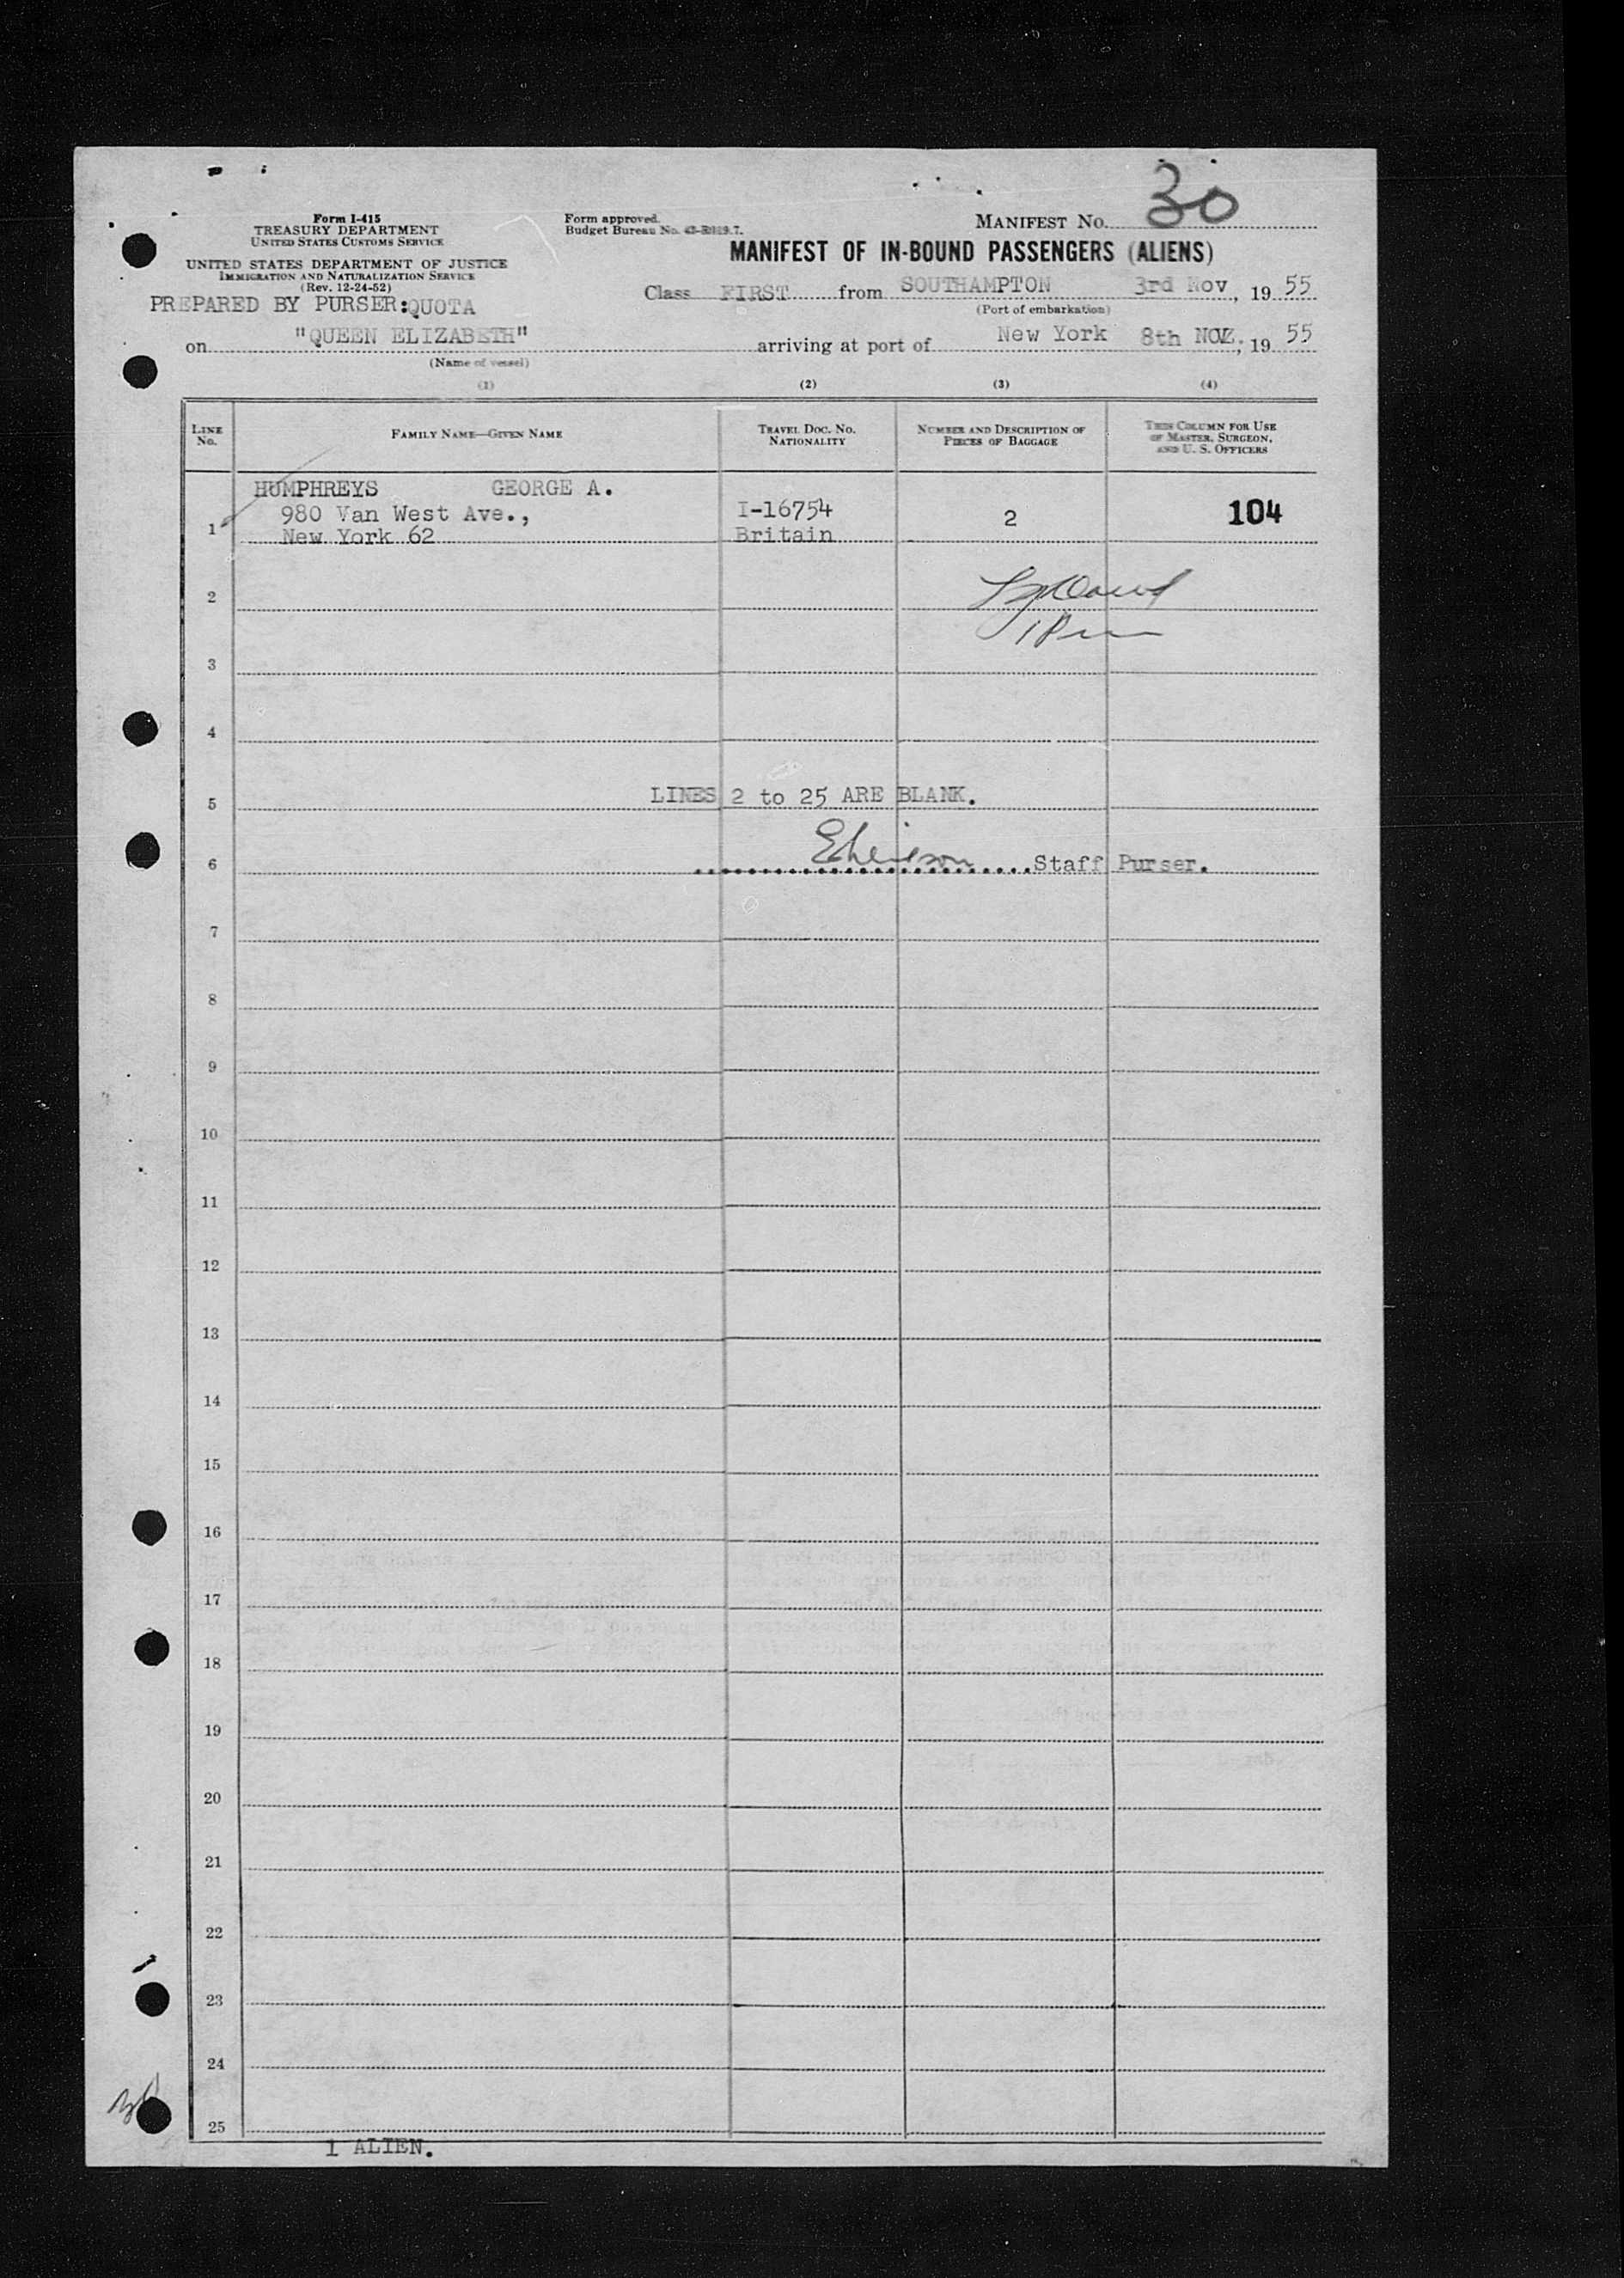 Form I-415
TREASURY DEPARTMENT
UNITED STATES CUSTOMS SERVICE
UNITED STATES DEPARTMENT OF JUSTICE
IMMIGRATION AND NATURALIZATION SERVICE
(Rev. 12-24-52)
PREPARED BY PURSER:QUOTA
Form approved.
Budget Bureau No.
MANIFEST No. 30
MANIFEST OF IN-BOUND PASSENGERS (ALIENS)
Class FIRST from SOUTHAMPTON 3rd Nov, 1955
(Port of embarkation)
on "QUEEN ELIZABETH" arriving at port of New York 8th NOV., 1955
(Name of vessel)
(1) (2) (3) (4)
LINE No. FAMILY NAME—GIVEN NAME TRAVEL DOC. No. NATIONALITY NUMBER AND DESCRIPTION OF PIECES OF BAGGAGE THIS COLUMN FOR USE OF MASTER, SURGEON, AND U. S. OFFICERS
HUMPHREYS GEORGE A.
980 Van West Ave., I-16754 2 104
1 New York 62 Britain
2
3
4
5 LINES 2 to 25 ARE BLANK.
6 Staff Purser.
7
8
9
10
11
12
13
14
15
16
17
18
19
20
21
22
23
24
25
1 ALIEN.